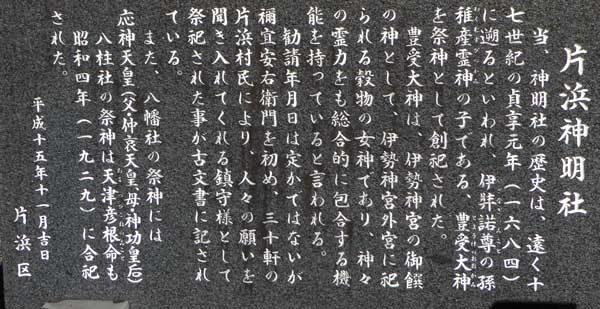 片浜神明社
当、神明社の歴史は、遠く十
七世紀の貞享元年(一六八四)
に遡るといわれ、伊弉諾尊の孫
稚産霊神の子である、豊受大神
を祭神として創祀された。
豊受大神は、伊勢神宮の御饌
の神として、伊勢神宮外宮に祀
られる穀物の女神であり、神々
の霊力をも総合的に包合する機
能を持っていると言われる。
勧請年月日は定かてはないが
禰宜安右衛門を初め、三十軒の
片浜村民により、人々の願いを
聞き入れてくれる鎮守様として
祭祀された事が古文書に記され
ている。
また、八幡社の祭神には
応神天皇(父仲哀天皇母神功皇后)
八柱社の祭神は天津彦根命も
昭和四年(一九二九)に合祀
された。
平成十五年十一月吉日
片浜区